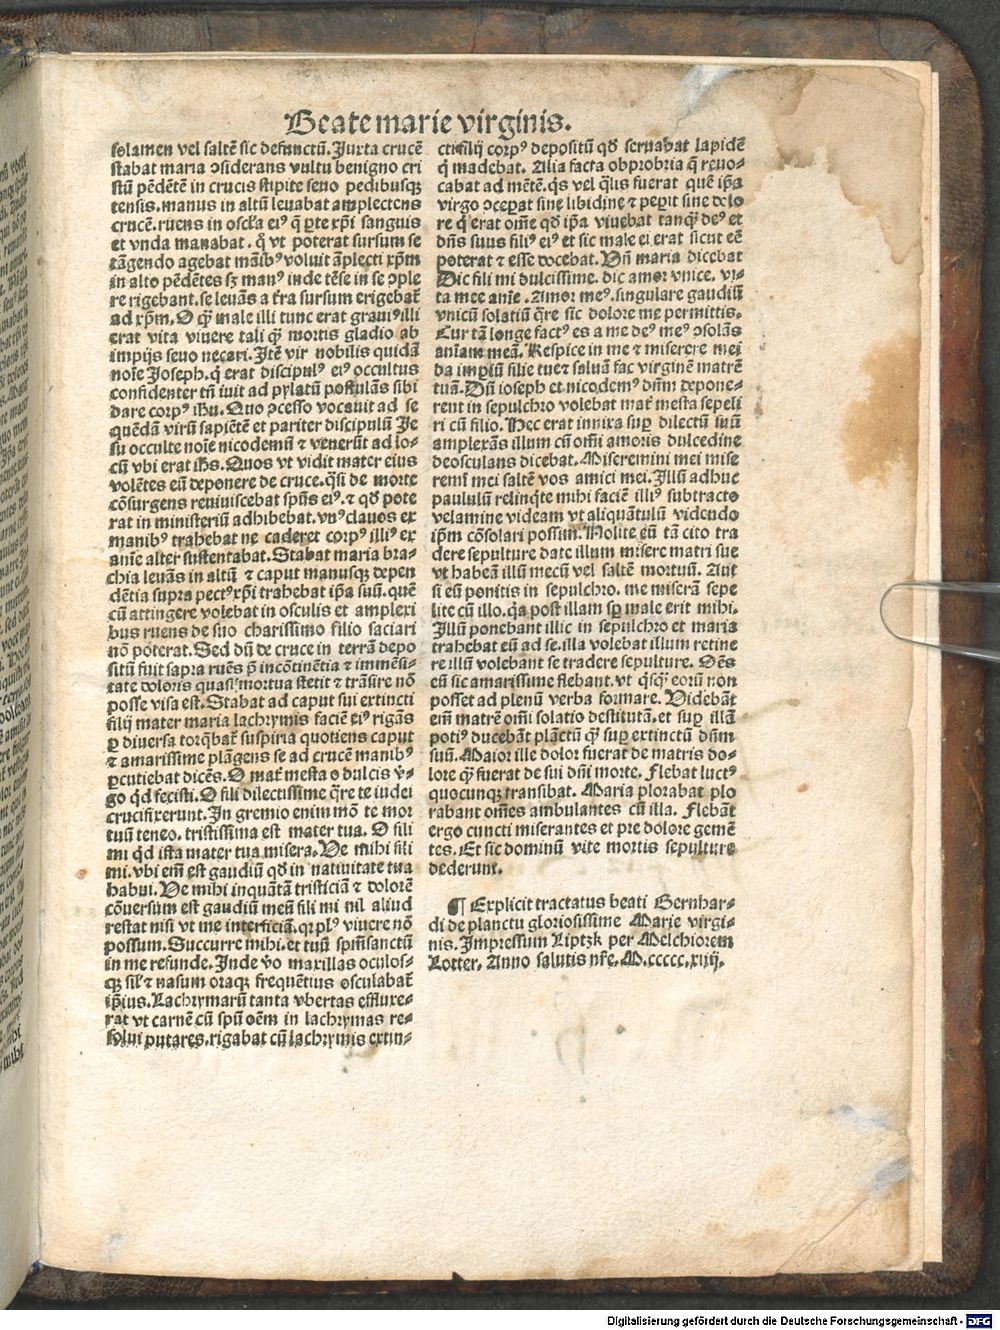 Beate marie virginis.
solamen vel saltē sic defunctū. Juxta crucē
stabat maria ↄsiderans vultu benigno cri
stū pēdētē in crucis stipite seuo pedibusqꝫ
tensis. manus in altū leuabat amplectens
crucē. ruens in oscła eiꝰ q̄ ꝑte xp̄i sanguis
et vnda manabat. q̄ vt poterat sursum se
tāgendo agebat māibꝰ voluit āplecti xp̄m
in alto pēdētes sꝫ manꝰ inde tēse in se ↄple
re rigebant. se leuās a t̄ra sursum erigebat̄
ad xp̄m. O q̄ꝫ male illi tunc erat grauiꝰ illi
erat vita viuere tali q̄ꝫ mortis gladio ab
impijs seuo necari. Itē vir nobilis quidā
noīe Joseph. q̄ erat discipulꝰ eiꝰ occultus
confidenter tn̄ iuit ad pylatū postulās sibi
dare corpꝰ ih̄u. Quo ↄcesso vocauit ad se
quēdā virū sapiētē et pariter discipulū Je
su occulte noīe nicodemū ⁊ venerūt ad lo-
cū vbi erat ih̄s. Quos vt vidit mater eius
volētes eū deponere de cruce. q̄si de morte
cōsurgens reuiuiscebat spūs eiꝰ. ⁊ qd̄ pote
rat in ministeriū adhibebat. vnꝰ clauos ex
manibꝰ trahebat ne caderet corpꝰ illiꝰ ex
anīe alter sustentabat. Stabat maria bra-
chia leuās in altū ⁊ caput manusqꝫ depen
dētia supra pectꝰ xp̄i trahebat ip̄a suū. quē
cū attingere volebat in osculis et amplexi
bus ruens de suo charissimo filio saciari
nō poterat. Sed dū de cruce in terrā depo
sitū fuit sapra ruēs p̄ incōtinētia ⁊ immēsi-
tate doloris quasi mortua stetit ⁊ trāsire nō
posse visa est. Stabat ad caput sui extincti
filij mater maria lachrymis faciē eiꝰ rigās
ꝑ diuersa torq̄bat̄ suspiria quotiens caput
⁊ amarissime plāgens se ad crucē manibꝰ
ꝑcutiebat dicēs. O mat̄ mesta o dulcis v̄-
go qd̄ fecisti. O fili dilectissime q̄re te iudei
crucifixerunt. In gremio enim mō te mor
tuū teneo. tristissima est mater tua. O fili
mi qd̄ ista mater tua misera. Ve mihi fili
mi. vbi em̄ est gaudiū qd̄ in natiuitate tua
habui. Ve mihi inquātā tristiciā ⁊ dolorē
cōuersum est gaudiū meū fili mi nil aliud
restat nisi vt me interficiā. qr plꝰ viuere nō
possum. Succurre mihi. et tuū spm̄ sanctū
in me refunde. Inde v̄o maxillas oculos-
qꝫ sil̄ ⁊ nasum oraqꝫ frequētius osculabat̄
ip̄ius. Lachrymarū tanta vbertas effluxe-
rat vt carnē cū spū oēm in lachrymas re-
solui putares. rigabat cū lachrymis extin-
cti filij corpꝰ depositū qd̄ seruabat lapidē
q̄ madebat. Alia facta obprobria q̄ reuo-
cabat ad mētē. q̄s vel q̄lis fuerat quē ip̄a
virgo ↄceꝑat sine libidine ⁊ peꝑit sine dolo
re q̄ erat om̄e qd̄ ip̄a viuebat tanqꝫ deꝰ et
dn̄s suus filiꝰ eiꝰ et sic male ei erat sicut eē
poterat ⁊ esse docebat. Vn̄ maria dicebat
Dic fili mi dulcissime. dic amor vnice. vi-
ta mee anīe. Amor meꝰ. singulare gaudiū
vnicū solatiū q̄re sic dolore me permittis.
Cur tā longe factꝰ es a me deꝰ meꝰ ↄsolās
aniam meā. Respice in me ⁊ miserere mei
da impiū filie tue ⁊ saluā fac virginē matrē
tuā. Dū ioseph et nicodemꝰ dn̄m depone-
rent in sepulchro volebat mat̄ mesta sepeli
ri cū filio. Hec erat innixa suꝑ dilectū suū
amplexās illum cū om̄i amoris dulcedine
deosculans dicebat. Miseremini mei mise
remī mei saltē vos amici mei. Illū adhuc
paululū relinq̄te mihi faciē illiꝰ subtracto
velamine videam vt aliquātulū videndo
ip̄m cōsolari possim. Nolite eū tā cito tra
dere sepulture date illum misere matri sue
vt habeā illū mecū vel saltē mortuū. Aut
si eū ponitis in sepulchro. me miserā sepe
lite cū illo. q̄a post illam sꝑ male erit mihi.
Illū ponebant illic in sepulchro et maria
trahebat eū ad se. illa volebat illum retine
re illū volebant se tradere sepulture. Oēs
eū sic amarissime flebant. vt q̄sqꝫ eorū non
posset ad plenū verba formare. Videbāt
em̄ matrē om̄i solatio destitutā. et suꝑ illā
potiꝰ ducebāt plāctū q̄ꝫ suꝑ extinctū dn̄m
suū. Maior ille dolor fuerat de matris do-
lore q̄ꝫ fuerat de sui dn̄i morte. Flebat luctꝰ
quocunqꝫ transibat. Maria plorabat plo
rabant om̄es ambulantes cū illa. Flebāt
ergo cuncti miserantes et pre dolore gemē
tes. Et sic dominū vite mortis sepulture
dederunt.
¶ Explicit tractatus beati Bernhar-
di de planctu gloriosissime Marie virgi-
nis. Impressum Liptzk per Melchiorem
Lotter. Anno salutis nr̄e. M.ccccc.xiij.
Digitalisierung gefördert durch die Deutsche Forschungsgemeinschaft - DFG